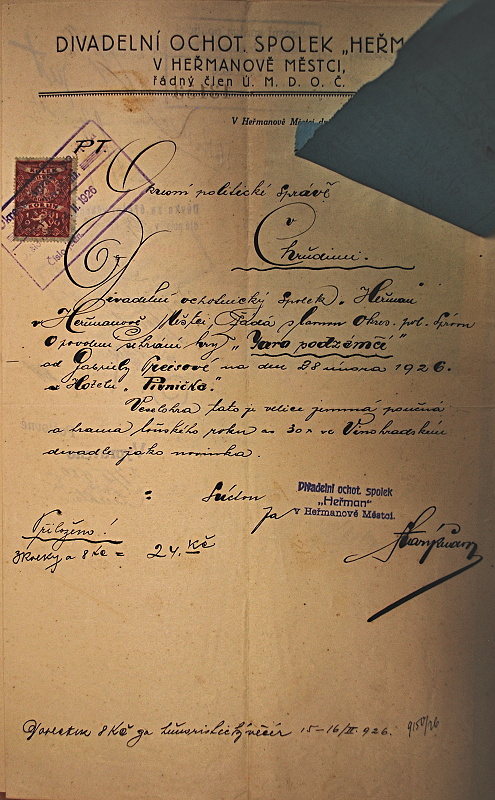 DIVADELNÍ OCHOT. SPOLEK „HEŘM
V HEŘMANOVĚ MĚSTCI,
řádný člen Ú. M. D. O. Č.
V Heřmanově Městci dn
P.T.
Okresní politické správě
v
Chrudimi.
Divadelní ochotnický spolek „Heřman“
v Heřmanově Městci, žádá slavnou Okres. pol. Správu
o povolení sehrání hry „Jaro podzemčí“
od Gabriely Preisové na den 28 února 1926
v Hotelu „Pivnička.“
Veselohra tato je velice jemná poučná
a hrána loňského roku as 30x ve Vinohradském
divadle jako novinka.
Za
Divadelní ochot. spolek
„Heřman“
v Heřmanově Městci.
Přiloženo!
3 kolky a 8 Kč = 24.- Kč
8 Kč za humoristický večír 15-16/II. 926.